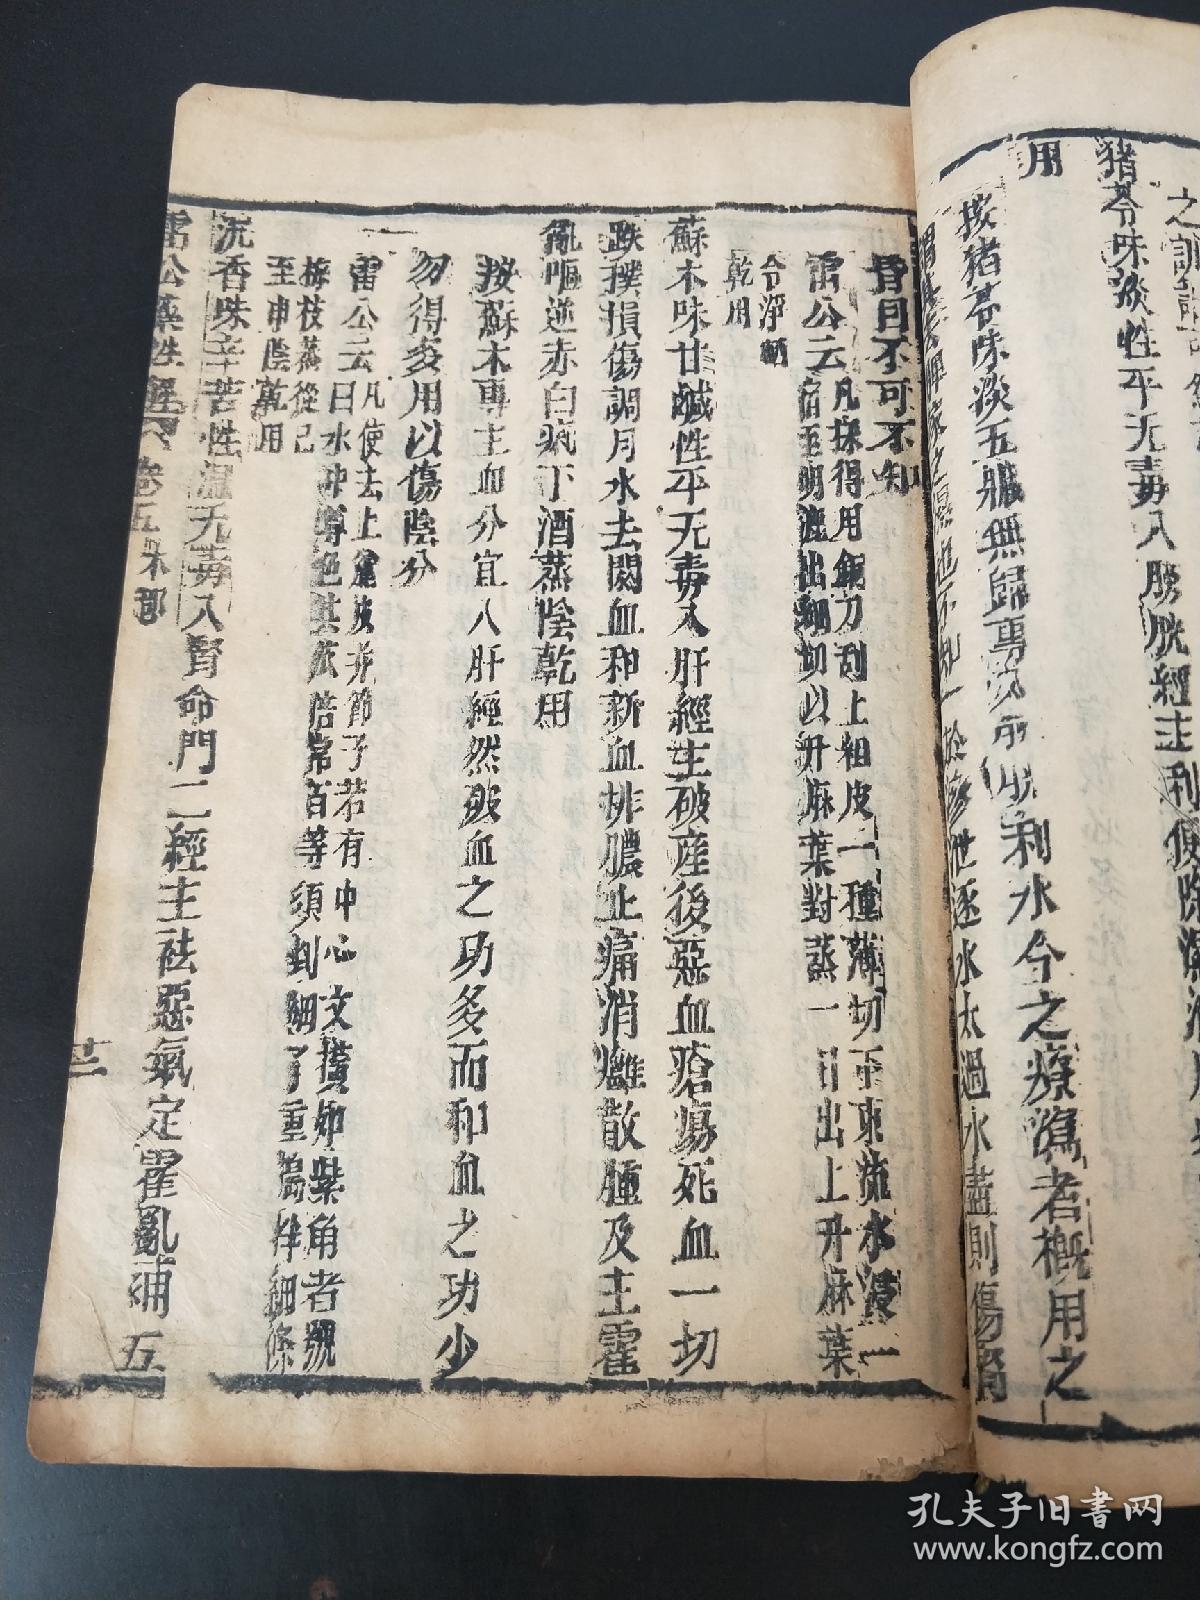 猪苓味淡性平无毒入膀胱經主利便除濕消
用
按猪苓味淡五臟無歸專
利水今之療
者概用之
滲泄逐水太過水盡則傷腎
昏目不可不知
雷公云凡採得用銅刀刮上粗皮一種薄切下東流水浸一
宿至明漉出細切以升麻葉對蒸一日出上升麻葉
令淨晒
乾用
蘇木味甘鹹性平无毒入肝經主破產後惡血瘡瘍死血一切
跌撲損傷調月水去閼血和新血排膿止痛消癰散腫及主霍
亂嘔逆赤白痢下酒蒸陰乾用
按蘇木專主血分宜入肝經然破血之功多而和血之功少
勿得多用以傷陰分
雷公云凡使去上麄皮并節子若有中心文橫如紫角者號
曰木中尊色其效倍常百等須剉細了重擣拌細條
梅枝蒸從巳
至申陰乾用
沉香味辛苦性溫无毒入腎命門二經主祛惡氣定霍亂補五
雷公藥性 卷五木部 廿二
孔夫子旧书网
www.kongfz.com